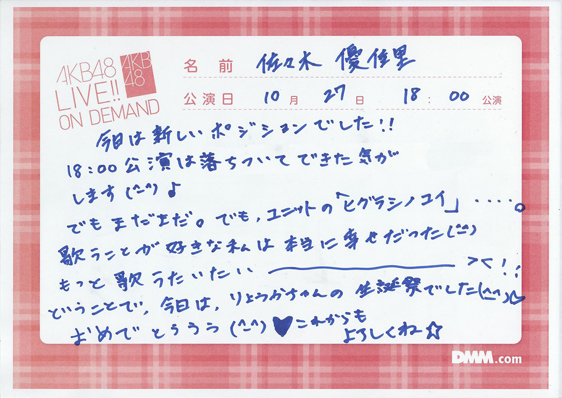 AKB48
LIVE!!
ON DEMAND
AKB
48
名前 佐々木 優佳里
公演日 10月 27日 18:00 公演
今日は新しいポジションでした!!
18:00公演は落ちついてできた気が
します(^-^)♪
でもまだまだ。でも、ユニットの「ヒグラシノコイ」・・・・。
歌うことが好きな私は本当に幸せだった(^-^)
もっと歌うたいたい ><!!
ということで、今日は、りょうかちゃんの生誕祭でした(^-^)♡
おめでとううう(^-^)♥これからも
よろしくね☆
DMM.com